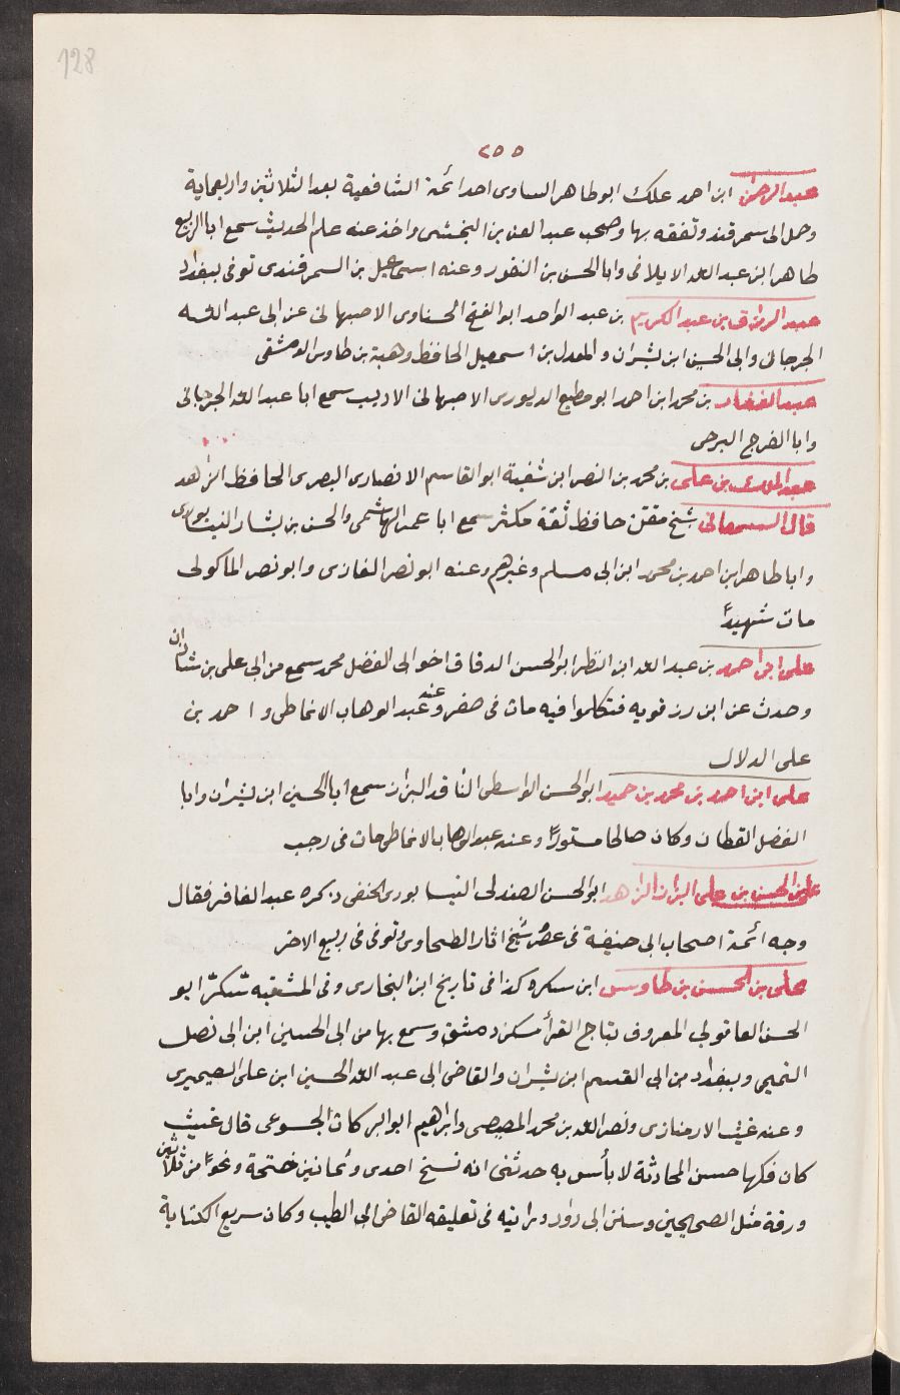 128
٢٥٥
عبد الرحمن ابن احمد علك ابو طاهر الساوى احد ائمة الشافعية بعد الثلاثين واربعماية
وحل الى سمرقند وتفقه بها وصحب عبد العزيز النخشى واخذ عنه علم الحديث سمع ابا الربيع
طاهر ابن عبد الله الايلانى وابا الحسن بن النقور وعنه اسماعيل بن السمرقندى توفى ببغداد
عبد الرزاق بن عبد الكريم بن عبد الواحد ابو الفتح الحسناوى الاصبهانى عن ابى عبد الله
الجرجانى وابى الحسين ابن بشران والمعدل بن اسمعيل الحافظ وهبة بن طاوس الدمشقى
عبد الغفار بن محمد ابن احمد ابو مطيع الديورى الاصبهانى الاديب سمع ابا عبد الله الجرجانى
وابا الفرج البرجى
عبد الملك بن على بن محمد بن النصر ابن شغبة ابو القاسم الانصارى البصرى الحافظ الزاهد
قال السمعانى شيخ متقن حافظ ثقة مكثر سمع ابا عمر الهاشمى والحسن بن بشار النيسابورى
وابا طاهر ابن احمد بن محمد ابن ابى مسلم وغيرهم وعنه ابو نصر الغازى وابو نصر الماكولى
مات شهيداً
على ابن احمد بن عبد الله ابن النظر ابو الحسن الدقاق اخو ابى الفضل محمد سمع من ابى على بن شاذان
وحدث عن ابن رزقويه فتكلموا فيه مات فى صفر وعنه عبد الوهاب الانماطى و احمد بن
على الدلال
على ابن احمد بن محمد بن حميد ابو الحسن الواسطى الناقد البزاز سمع ابا الحسين ابن بشران وابا
الفضل القطان وكان صالحا مستورًا وعنه عبد الوهاب الانماطى مات فى رجب
على بن الحسن بن على البزاز الزاهد ابو الحسن الصندلى النيسابورى الحنفى ذكره عبد الغافر فقال
وجه ائمة اصحاب ابى حنيفة فى عصره شيخ اثار الطحاوى توفى فى ربيع الاخر
على بن الحسن بن طاوس ابن سكره كذا فى تاريخ ابن البخارى وفى المشتبه سكر ابو
الحسن العاقولى المعروف بتاج القرأ سكن دمشق وسمع بها من ابى الحسين ابن ابى نصل
التميمى وببغداد من ابى القسم ابن بشران والقاضى ابى عبد الله الحسين ابن على الصيميرى
وعنه غيث الارمنازى ونصر الله بن محمد المصيصى وابراهيم ابو البركات الجسوعى قال غيث
كان فكها حسن المحادثة لا بأس به حدثنى انه نسخ احدى وثمانين ختمة ونحوًا من ثلاثين
ورقة مثل الصحيحين وسنن ابى داود وراتبه فى تعليقه القاضى ابى الطيب وكان سريع الكتابة